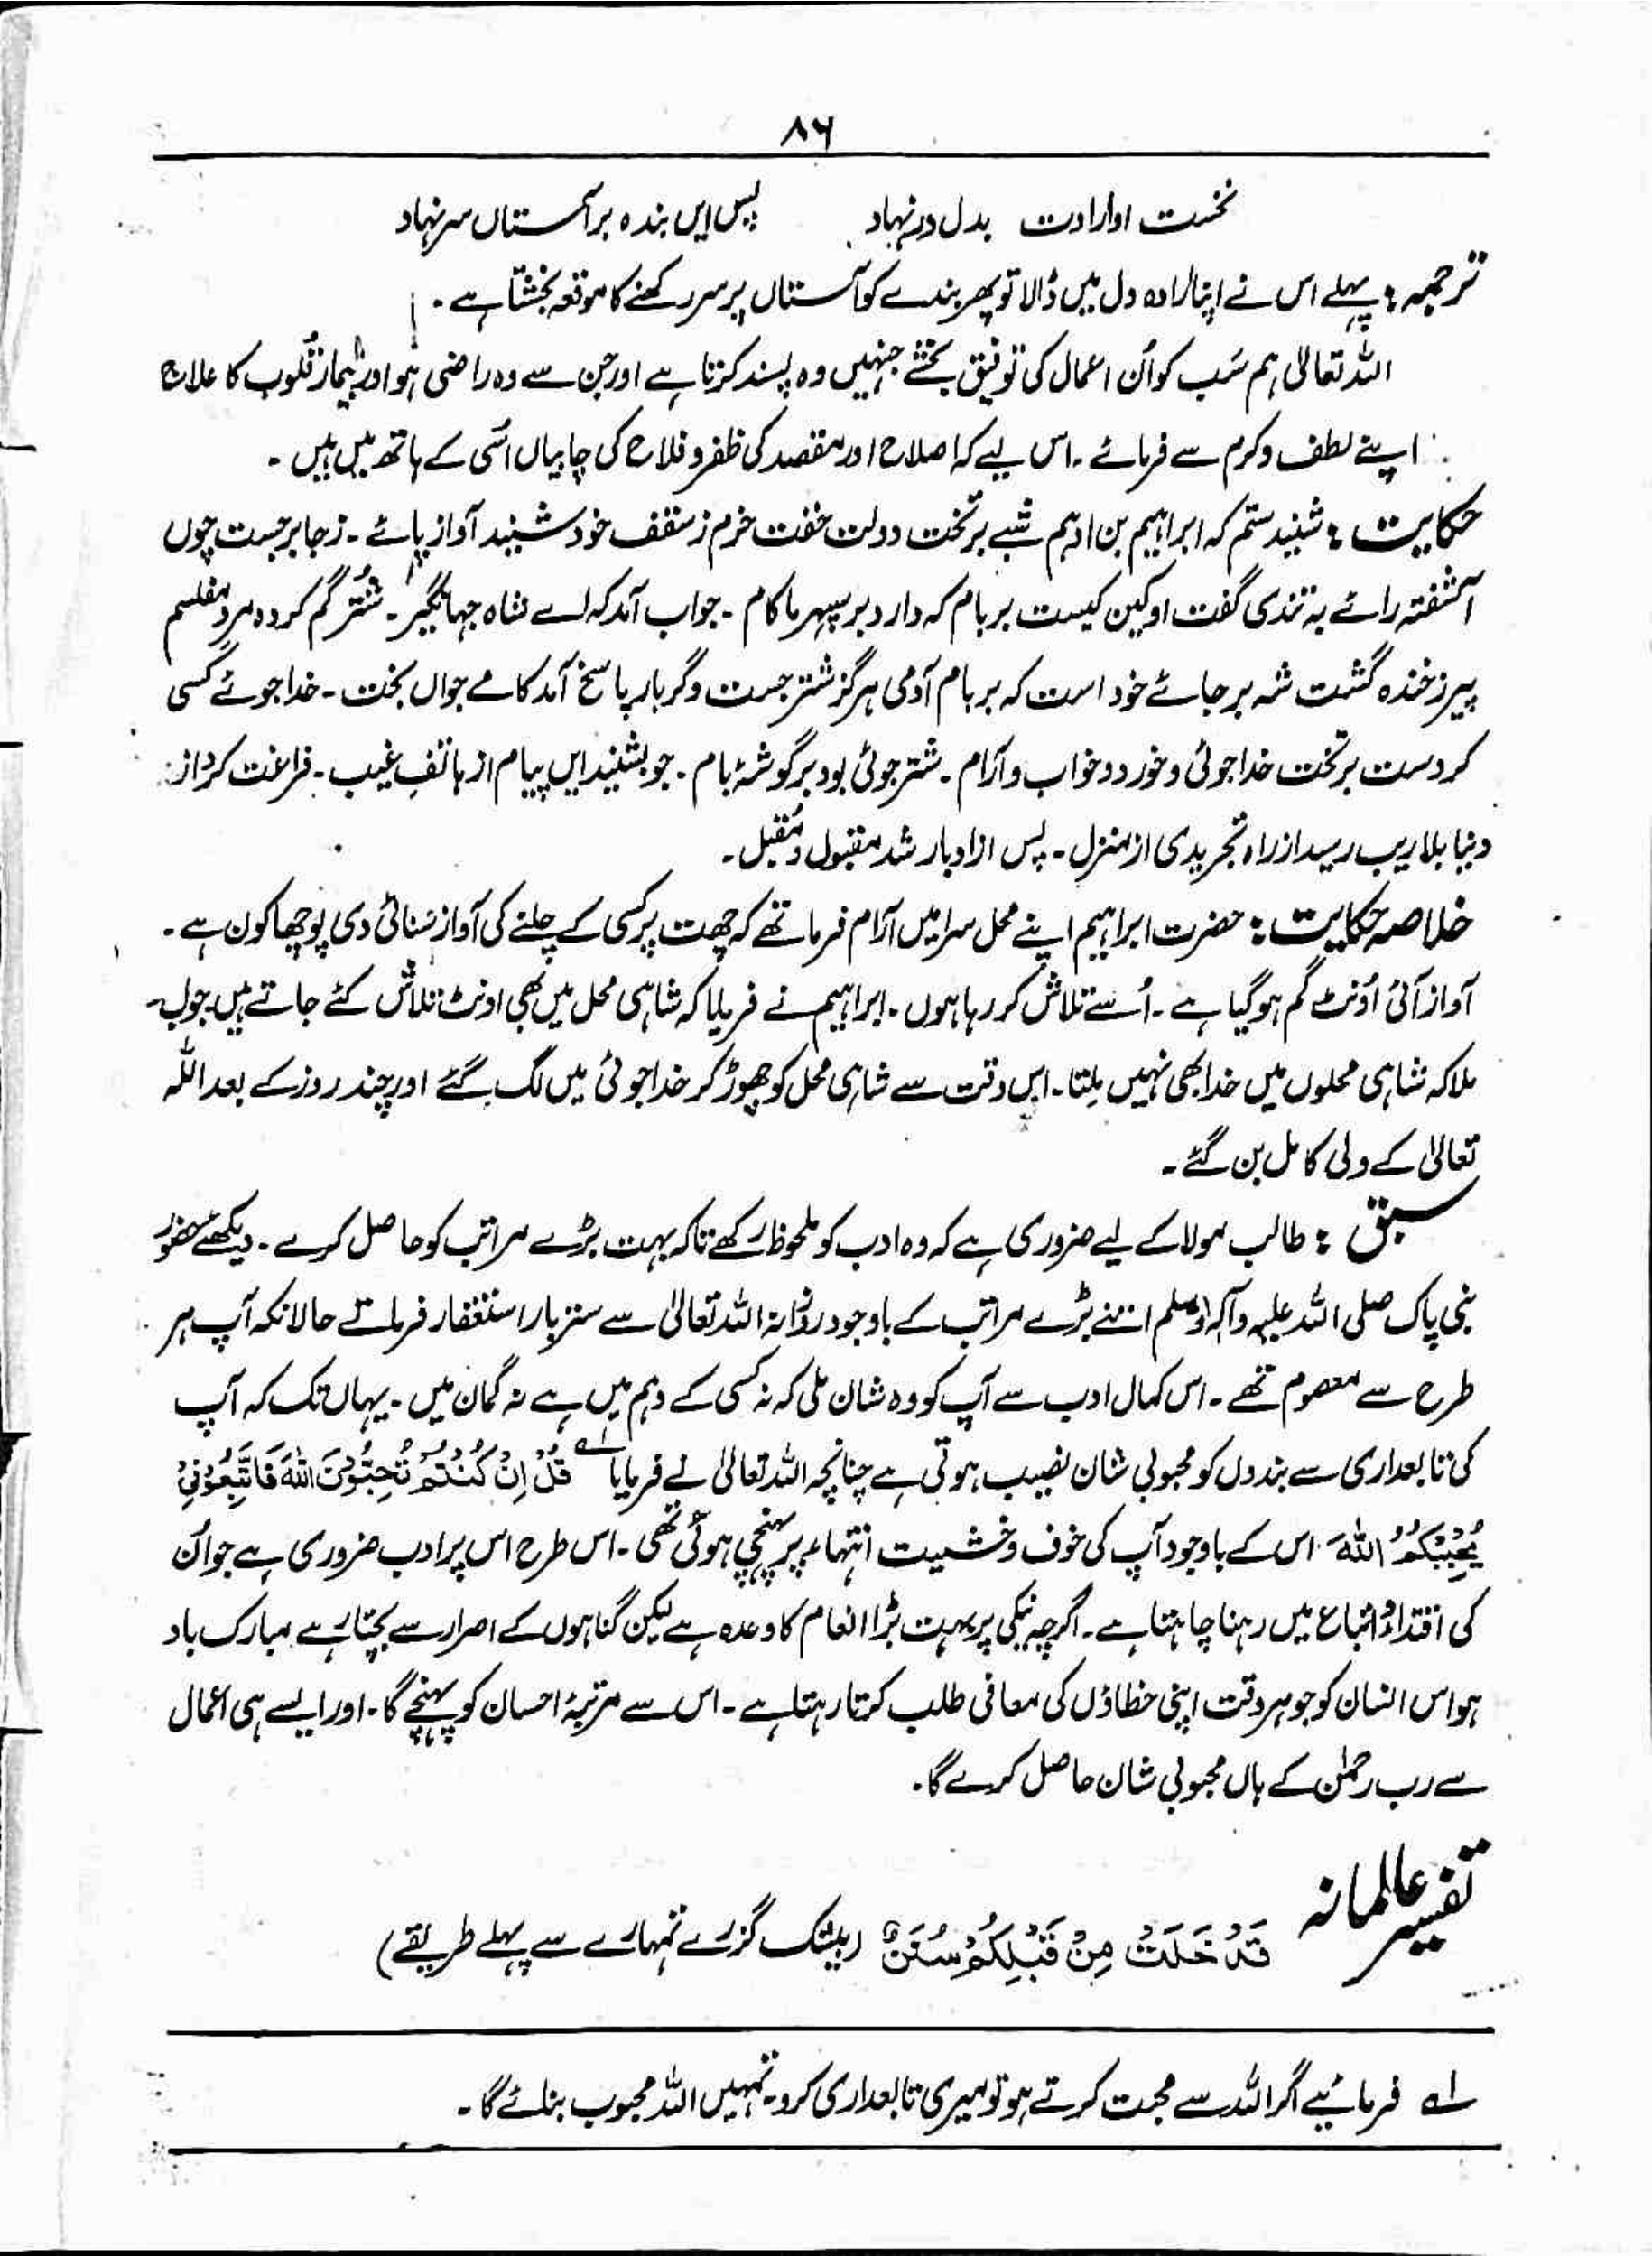 ۸۶
نخست او ارادت بدل در نہاد پس ایں بندہ بر آستاں سر نہاد
ترجمہ : پہلے اس نے اپنا ارادہ دل میں ڈالا تو پھر بندے کو آستاں پر سر رکھنے کا موقعہ بخشتا ہے ۔
اللہ تعالیٰ ہم سَب کو اُن اعمال کی توفیق بخشے جنہیں وہ پسند کرتا ہے اور جن سے وہ راضی ہو اور بیمار قلُوب کا علاج
اپنے لطف و کرم سے فرمائے ۔ اس لیے کہ اصلاح اور مقصد کی ظفر و فلاح کی چابیاں اسُی کے ہاتھ میں ہیں ۔
حکایت : شنیدستم کہ ابراہیم بن ادہم شبے بر تخت دولت خفت خرم ز سقف خود شنید آواز پائے ۔ ز جا برجست چوں
آشفتہ رائے بہ تندی گفت او کین کیست بر بام کہ دارد بر سپہر ما کام ۔ جواب آمد کہ اے شاہ جہانگیر ۔ شُتر گم کردہ مرد مفلسم
پیر ز خندہ گشت شہ بر جائے خود است کہ بر بام آدمی ہرگز شتر جست دگر بار پاسخ آمد کامے جواں بخت ۔ خدا جوئے کسی
کردست بر تخت خدا جوئی و خورد و خواب و آرام ۔ شتر جوئی بود بر گوشۂ بام ۔ جو بشنید ایں پیام از ہاتفِ غیب ۔ فراغت کرد از
دنیا بلا ریب رسید از راہ تجریدی از منزل ۔ پس از ادبار شد مقبول و مُقبل ۔
خلاصہ حکایت : حضرت ابراہیم اپنے محل سرا میں آرام فرما تھے کہ چھت پر کسی کے چلنے کی آواز سُنائی دی پُوچھا کون ہے ۔
آواز آئی اُونٹ گم ہو گیا ہے ۔ اُسے تلاش کر رہا ہوں ۔ ابراہیم نے فرمایا کہ شاہی محل میں بھی اونٹ تلاش کئے جاتے ہیں جواب
ملا کہ شاہی محلوں میں خدا بھی نہیں مِلتا ۔ اس وقت سے شاہی محل کو چھوڑ کر خدا جوئی میں لگ گئے اور چند روز کے بعد اللہ
تعالیٰ کے ولی کامل بن گئے ۔
سبق : طالب مولا کے لیے ضروری ہے کہ وہ ادب کو ملحوظ رکھے تاکہ بہت بڑے مراتب کو حاصل کرے ۔ دیکھئے حضور
نبی پاک صلی اللہ علیہ وآلہٖ وسلم اتنے بڑے مراتب کے باوجود روزانہ اللہ تعالیٰ سے ستر بار استغفار فرماتے حالانکہ آپ ہر
طرح سے معصوم تھے ۔ اس کمال ادب سے آپ کو وہ شان ملی کہ نہ کسی کے وہم میں ہے نہ گمان میں ۔ یہاں تک کہ آپ
کی تابعداری سے بندوں کو محبوبی شان نصیب ہوتی ہے چنانچہ اللہ تعالیٰ نے فرمایا ۱؎ قُلْ اِنْ کُنْتُمْ تُحِبُّوْنَ اللّٰہَ فَاتَّبِعُوْنِیْ
یُحْبِبْکُمُ اللّٰہَ اس کے باوجود آپ کی خوف و خشیت انتہاء پر پہنچی ہوئی تھی ۔ اس طرح اس پر ادب ضروری ہے جو اُن
کی اقتداء و اتباع میں رہنا چاہتا ہے ۔ اگرچہ نیکی پر بہت بڑا انعام کا وعدہ ہے لیکن گناہوں کے اصرار سے بچتا رہے مبارک باد
ہو اس انسان کو جو ہر وقت اپنی خطاؤں کی معافی طلب کرتا رہتا ہے ۔ اس سے مرتبۂ احسان کو پہنچے گا ۔ اور ایسے ہی اعمال
سے رب رحمٰن کے ہاں محبوبی شان حاصل کرے گا ۔
تفسیر عالمانہ قَدْ خَلَتْ مِنْ قَبْلِکُمْ سُنَنٌ (بیشک گزرے تمہارے سے پہلے طریقے)
۱؎ فرمائیے اگر اللہ سے محبت کرتے ہو تو میری تابعداری کرو تمہیں اللہ محبوب بنائے گا ۔